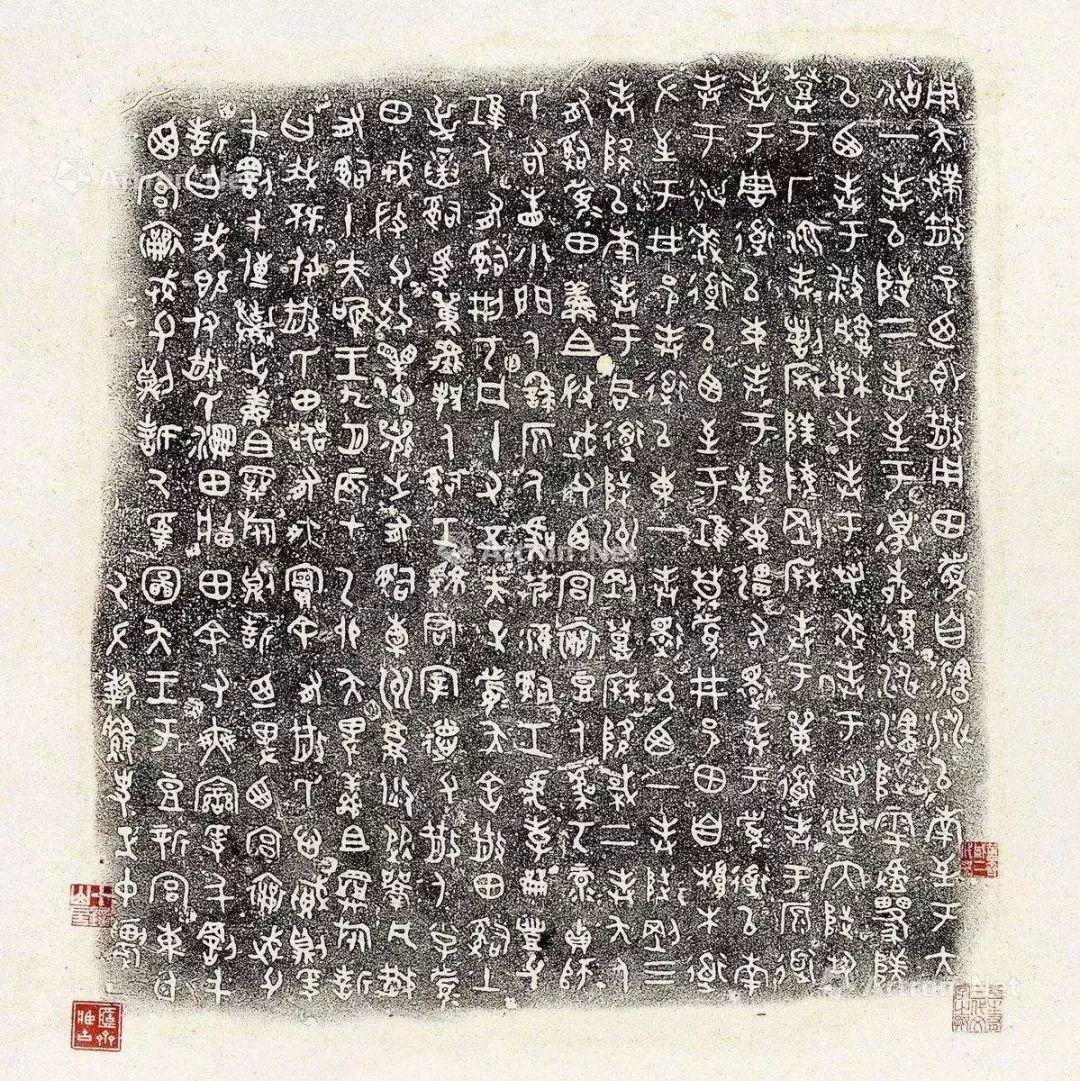 用夨散邑乃即散用田眉自瀗涉以南至于大
沽一奉以陟二奉至于邊柳復涉瀗陟雩陕
以西奉于城木奉于芻逨奉于芻道内陟芻
登于厂湶奉陕陵剛奉于道奉于原道
奉于周道以東奉于東疆右還奉于眉道以南
奉于逨道以西至于莫眉井邑田自根木道
左至于井邑奉道以東一奉還以西一奉陟剛三
奉降以南奉于同道陟州剛登降棫二奉夨人
有嗣眉田鮮且微武父西宮襄豆人虞丂彔貞師
氏右眚小門人繇原人虞艿淮嗣工虎孝龠豐父
琟人有嗣荊丂凡十又五夫正眉夨舍散田嗣土
屰嗣馬人嗣工君宰德父散人小子眉
田戎微父效父襄之有嗣橐州焂從凡散
有嗣十夫唯王九月辰才乙卯夨卑鮮且旅誓
曰我既付散氏田器有爽實余有散氏心賊則爰
千罰千傳棄之鮮且旅則誓廼卑西宮襄武父
誓曰我既付散氏濕田田余有爽變爰千罰千
西宮襄武父則誓厥受圖夨王于豆新宮東廷
厥左執史正中農